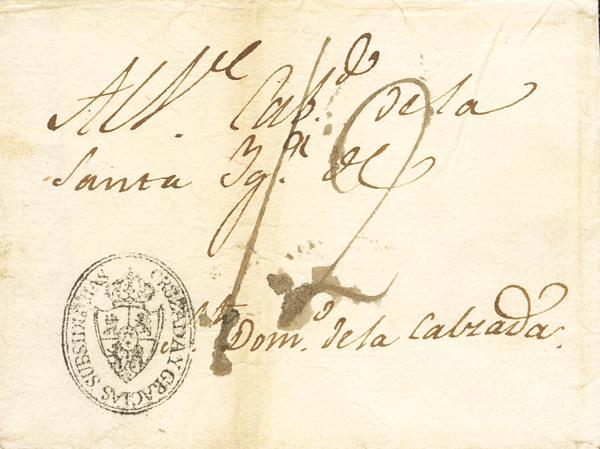 Al V.el Cab.do de la
Santa Yg.a de
S.to Dom.o de la Calzada.
12
CRUZADA Y GRACIAS SUBSIDIARIAS